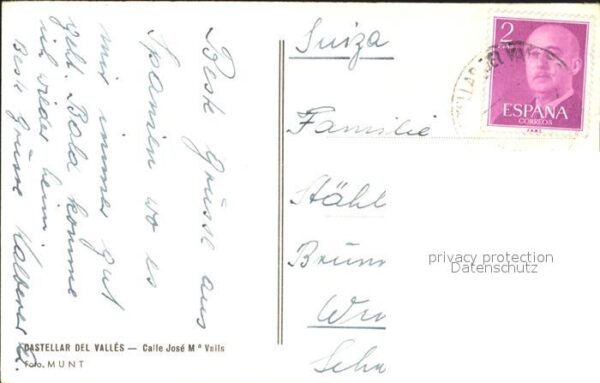 Beste Grüsse aus
Spanien wo es
mir immer gut
geht. Bald komme
ich wieder heim.
Beste Grüsse
CASTELLAR DEL VALLÉS — Calle José Mª Valls
Foto. MUNT
Suiza
Familie
Stähl
Brunn
Win
Schw
2
PTAS
ESPAÑA
CORREOS
privacy protection
Datenschutz